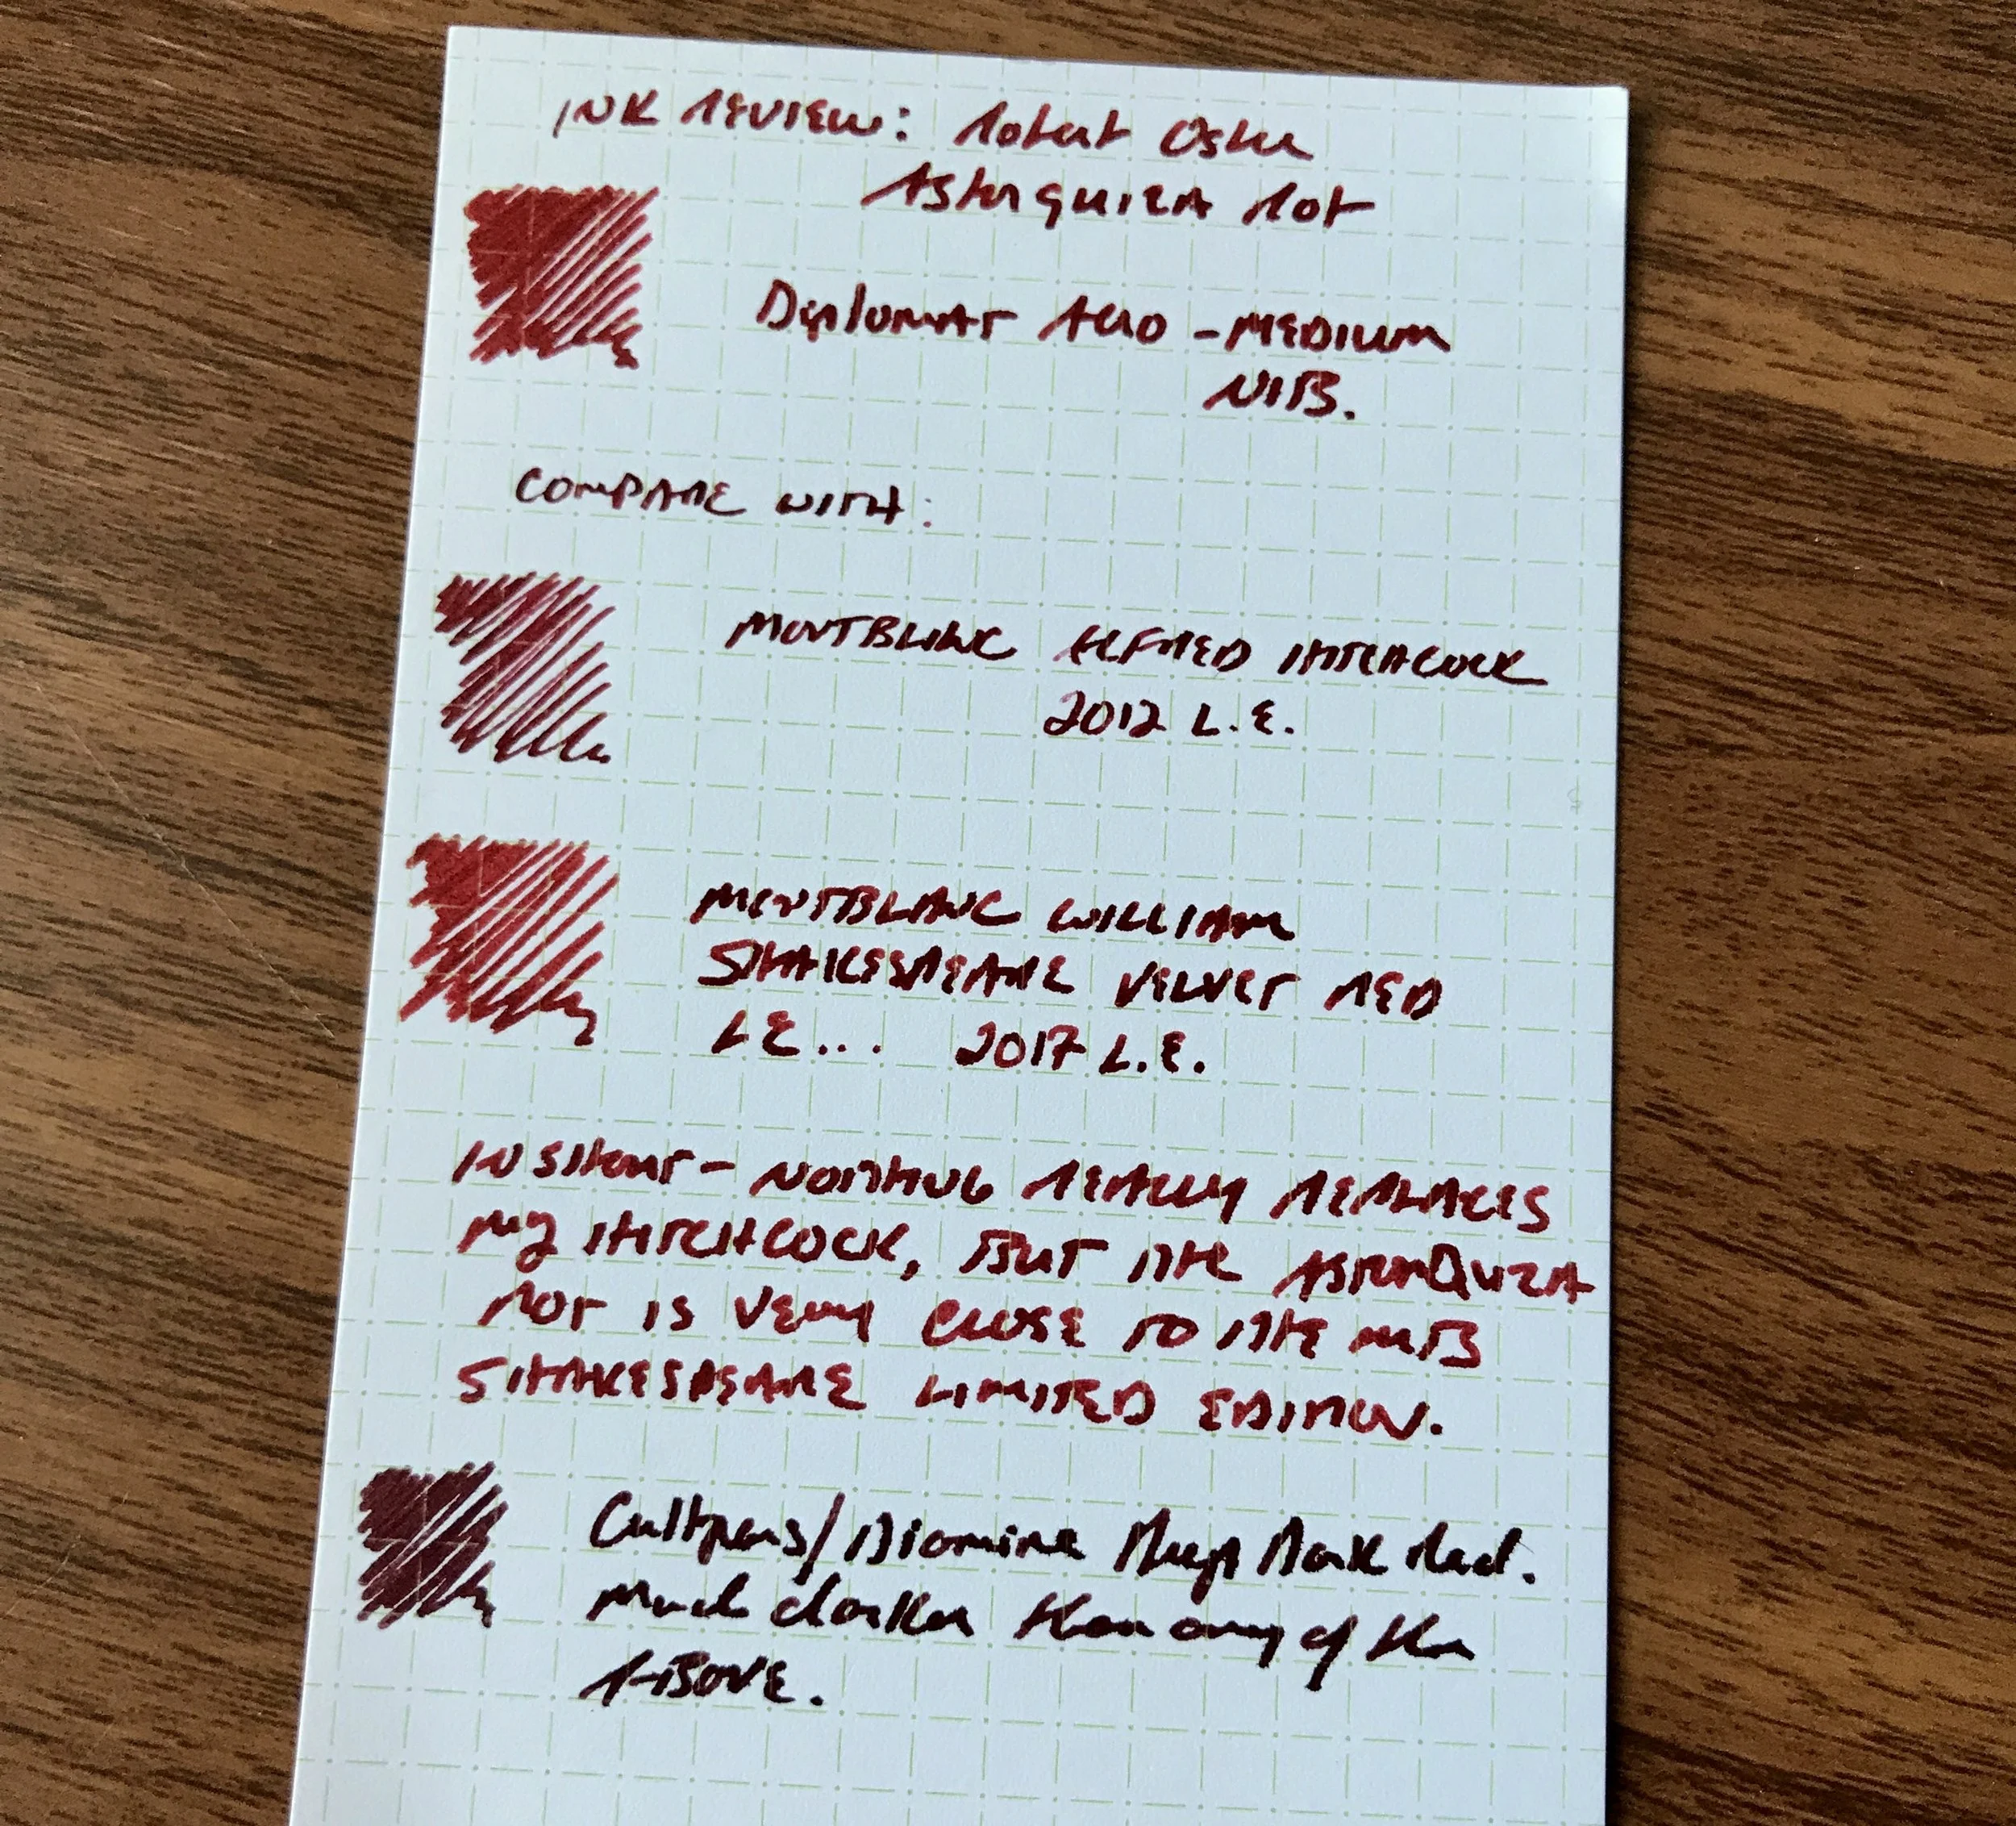 INK REVIEW: Robert Oster
Astorquiza Rot
Diplomat Aero - MEDIUM
NIB.
COMPARE WITH:
MONTBLANC ALFRED HITCHCOCK
2012 L.E.
MONTBLANC WILLIAM
SHAKESPEARE VELVET RED
LE... 2017 L.E.
IN SHORT - NOTHING REALLY REPLACES
MY HITCHCOCK, BUT THE ASTORQUIZA
ROT IS VERY CLOSE TO THE MB
SHAKESPEARE LIMITED EDITION.
Cultpens/Diamine Deep Dark Red.
Much darker than any of the
ABOVE.